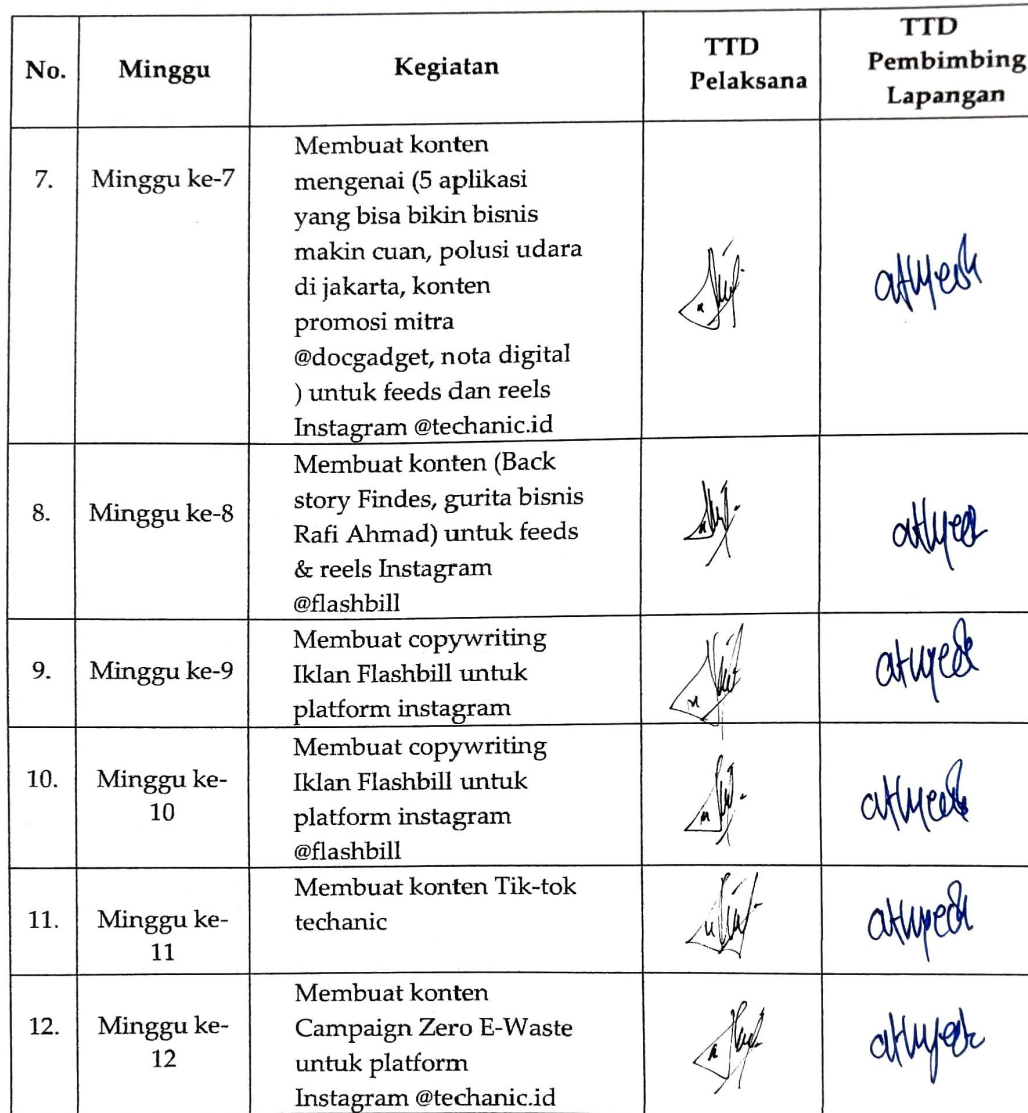 No.
Minggu
Kegiatan
TTD
Pelaksana
TTD
Pembimbing
Lapangan
7.
Minggu ke-7
Membuat konten
mengenai (5 aplikasi
yang bisa bikin bisnis
makin cuan, polusi udara
di jakarta, konten
promosi mitra
@docgadget, nota digital
) untuk feeds dan reels
Instagram @techanic.id
8.
Minggu ke-8
Membuat konten (Back
story Findes, gurita bisnis
Rafi Ahmad) untuk feeds
& reels Instagram
@flashbill
9.
Minggu ke-9
Membuat copywriting
Iklan Flashbill untuk
platform instagram
10.
Minggu ke-
10
Membuat copywriting
Iklan Flashbill untuk
platform instagram
@flashbill
11.
Minggu ke-
11
Membuat konten Tik-tok
techanic
12.
Minggu ke-
12
Membuat konten
Campaign Zero E-Waste
untuk platform
Instagram @techanic.id